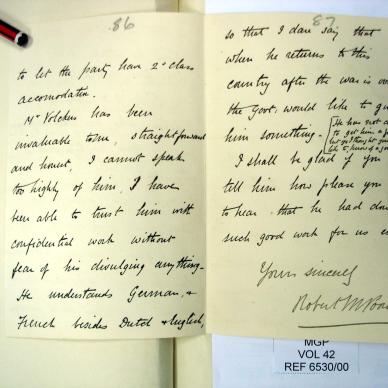 86
to let the party have 2nd class
accomodation.
Mr Volckers has been
invaluable to me, straightforward
and honest, I cannot speak
too highly of him, I have
been able to trust him with
confidential work without
fear of his divulging anything –
He understands German, &
French besides Dutch & English,
87
so that I dare say that
when he returns to this
country after the war is ov
the Govt. would like to gi
him something –
[He has not a
to get him a jo
but you might
like to know of
I shall be glad if you
tell him how please you
to hear that he had don
such good work for us
Yours sincerely
Robert M
MGP
VOL 42
REF 6530/00